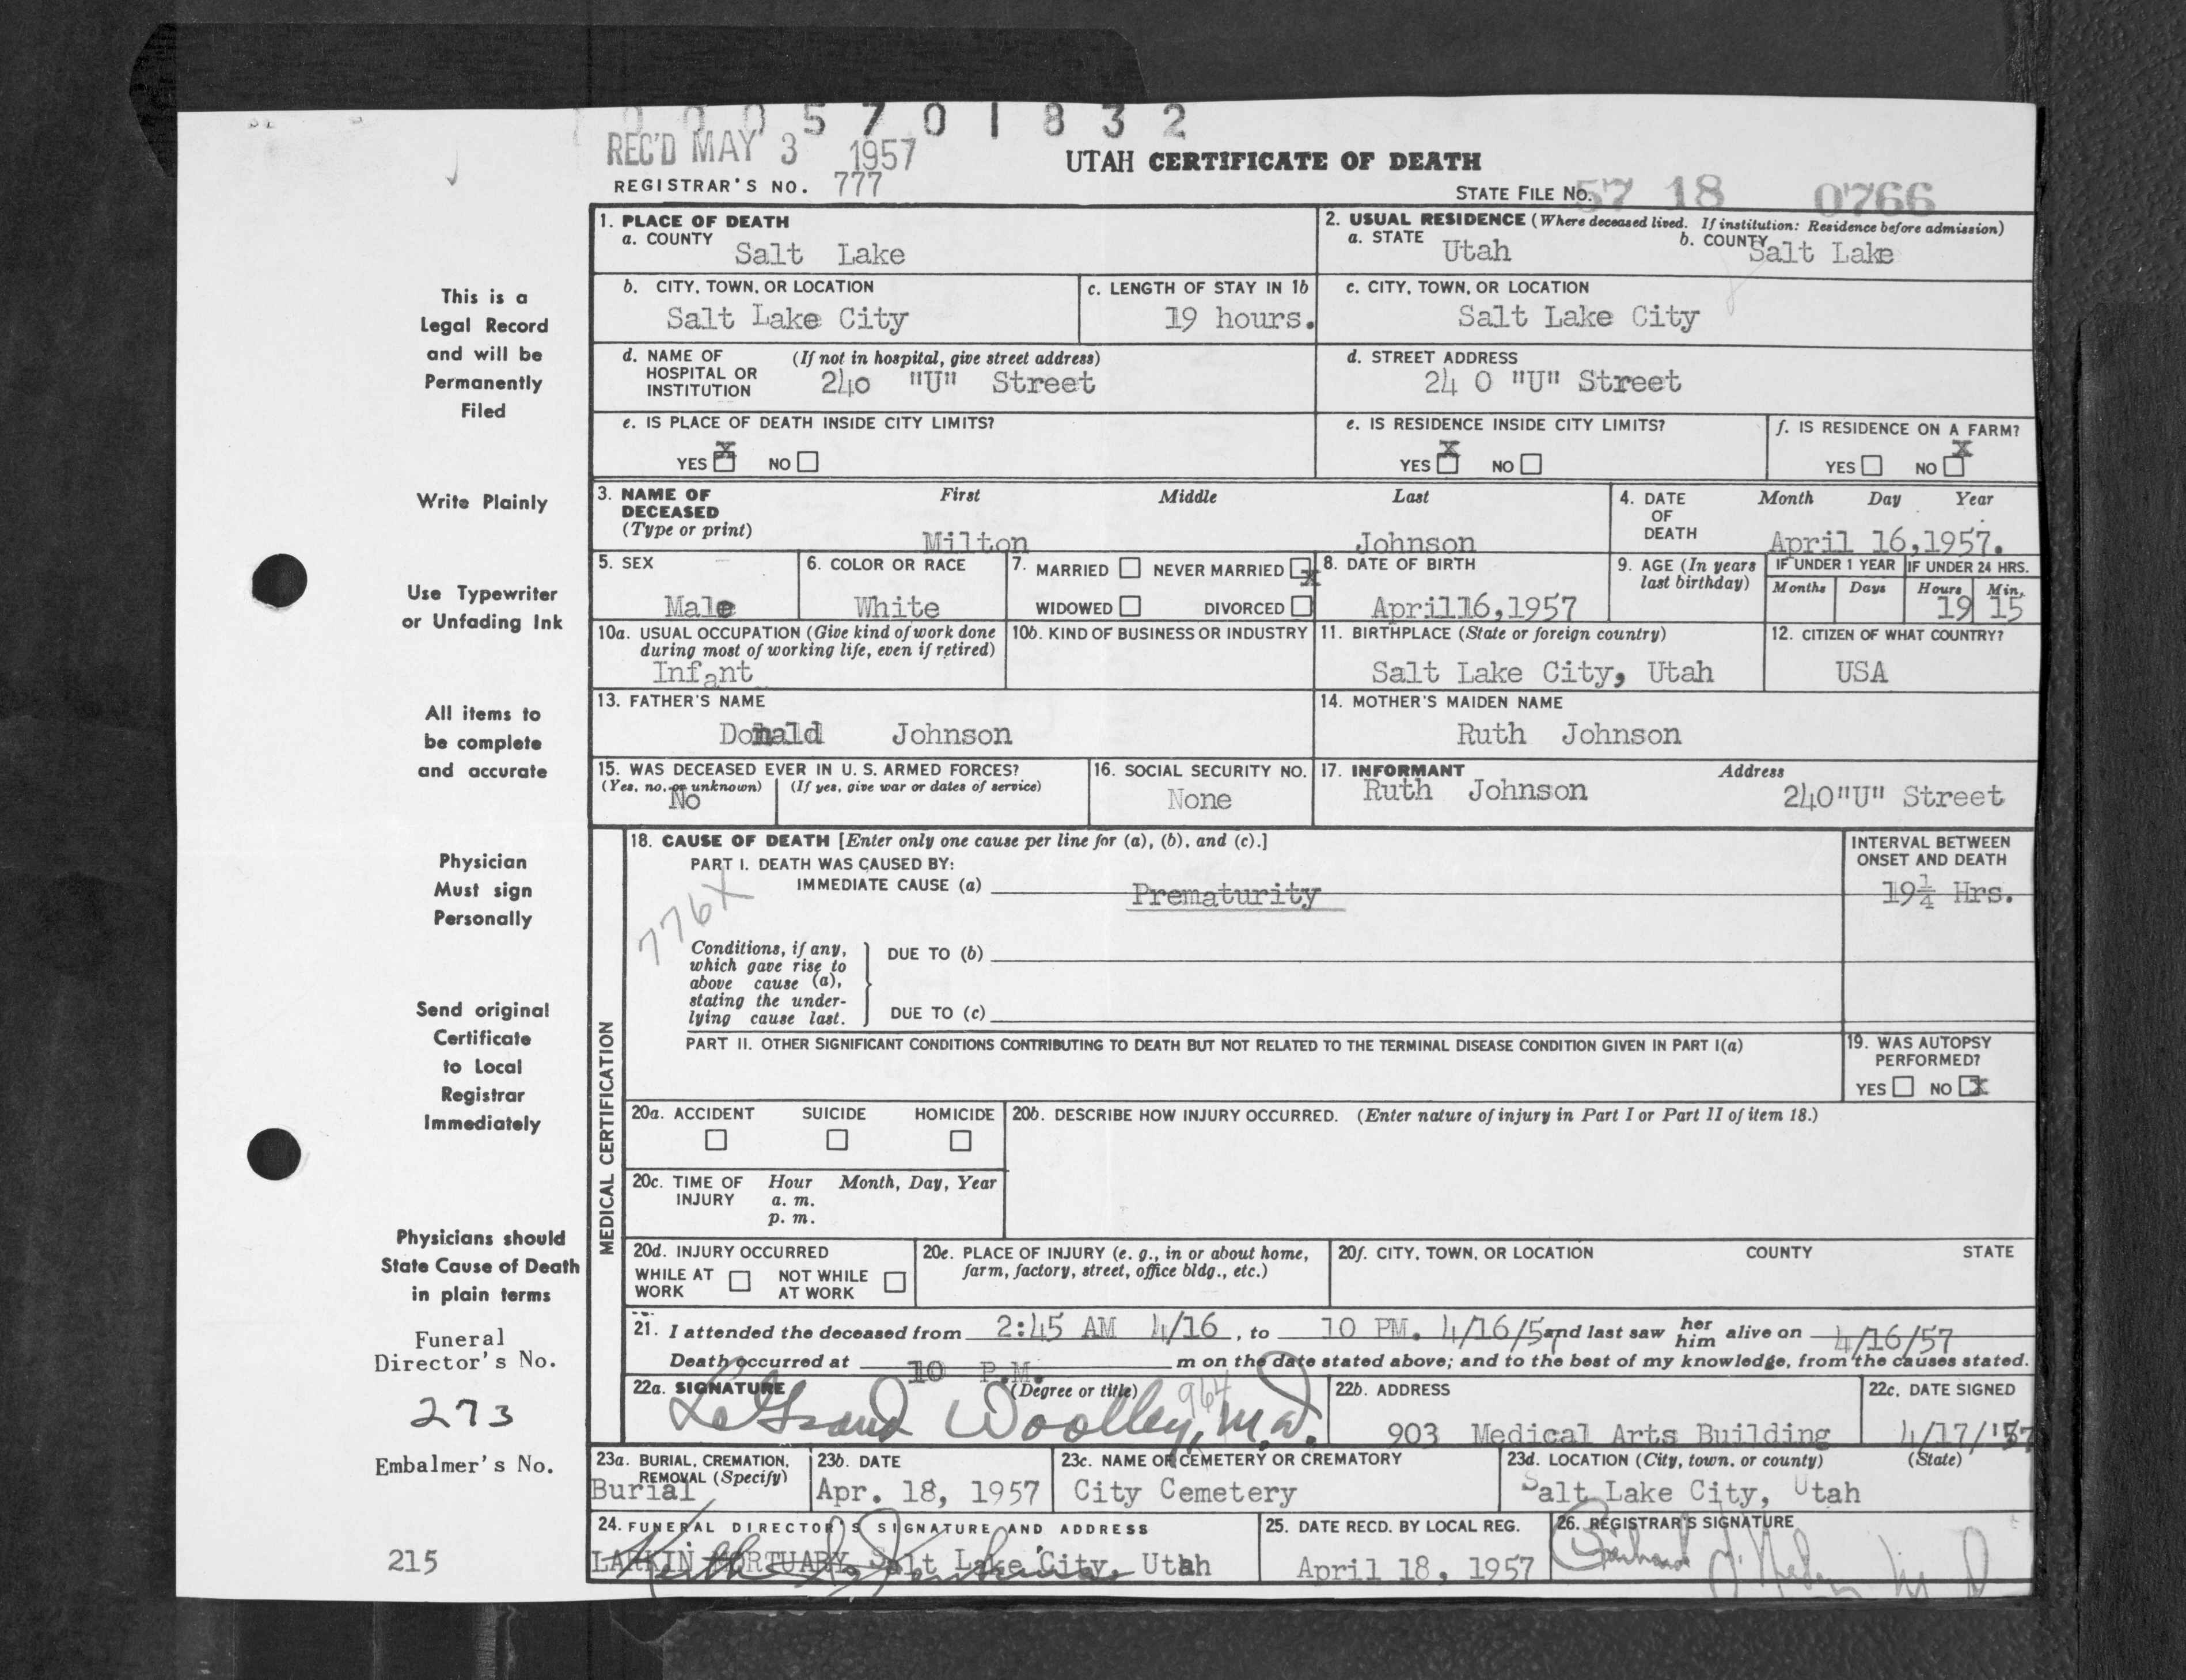 0005701832
REC'D MAY 3 1957
UTAH CERTIFICATE OF DEATH
REGISTRAR'S NO. 777
STATE FILE NO. 57 18 0766
This is a
Legal Record
and will be
Permanently
Filed
Write Plainly
Use Typewriter
or Unfading Ink
All items to
be complete
and accurate
Physician
Must sign
Personally
Send original
Certificate
to Local
Registrar
Immediately
Physicians should
State Cause of Death
in plain terms
Funeral
Director's No.
273
Embalmer's No.
215
1. PLACE OF DEATH
a. COUNTY Salt Lake
2. USUAL RESIDENCE (Where deceased lived. If institution: Residence before admission)
a. STATE Utah b. COUNTY Salt Lake
b. CITY, TOWN, OR LOCATION
Salt Lake City
c. LENGTH OF STAY IN 1b
19 hours.
c. CITY, TOWN, OR LOCATION
Salt Lake City
d. NAME OF HOSPITAL OR INSTITUTION (If not in hospital, give street address)
240 "U" Street
d. STREET ADDRESS
24 0 "U" Street
e. IS PLACE OF DEATH INSIDE CITY LIMITS?
YES X NO
e. IS RESIDENCE INSIDE CITY LIMITS?
YES X NO
f. IS RESIDENCE ON A FARM?
YES NO X
3. NAME OF DECEASED (Type or print)
First Middle Last
Milton Johnson
4. DATE OF DEATH Month Day Year
April 16,1957.
5. SEX
Male
6. COLOR OR RACE
White
7. MARRIED NEVER MARRIED X
WIDOWED DIVORCED
8. DATE OF BIRTH
April16,1957
9. AGE (In years last birthday)
IF UNDER 1 YEAR
Months Days
IF UNDER 24 HRS.
Hours Min.
19 15
10a. USUAL OCCUPATION (Give kind of work done during most of working life, even if retired)
Infant
10b. KIND OF BUSINESS OR INDUSTRY
11. BIRTHPLACE (State or foreign country)
Salt Lake City, Utah
12. CITIZEN OF WHAT COUNTRY?
USA
13. FATHER'S NAME
Donald Johnson
14. MOTHER'S MAIDEN NAME
Ruth Johnson
15. WAS DECEASED EVER IN U. S. ARMED FORCES?
(Yes, no, or unknown) (If yes, give war or dates of service)
No
16. SOCIAL SECURITY NO.
None
17. INFORMANT Address
Ruth Johnson 240"U" Street
MEDICAL CERTIFICATION
18. CAUSE OF DEATH [Enter only one cause per line for (a), (b), and (c).]
PART I. DEATH WAS CAUSED BY:
IMMEDIATE CAUSE (a) Prematurity
776X
INTERVAL BETWEEN ONSET AND DEATH
19¼ Hrs.
Conditions, if any, which gave rise to above cause (a), stating the underlying cause last.
DUE TO (b)
DUE TO (c)
PART II. OTHER SIGNIFICANT CONDITIONS CONTRIBUTING TO DEATH BUT NOT RELATED TO THE TERMINAL DISEASE CONDITION GIVEN IN PART I(a)
19. WAS AUTOPSY PERFORMED?
YES NO X
20a. ACCIDENT SUICIDE HOMICIDE
20b. DESCRIBE HOW INJURY OCCURRED. (Enter nature of injury in Part I or Part II of item 18.)
20c. TIME OF INJURY Hour Month, Day, Year
a. m.
p. m.
20d. INJURY OCCURRED
WHILE AT WORK NOT WHILE AT WORK
20e. PLACE OF INJURY (e. g., in or about home, farm, factory, street, office bldg., etc.)
20f. CITY, TOWN, OR LOCATION COUNTY STATE
21. I attended the deceased from 2:45 AM 4/16, to 10 PM. 4/16/57 and last saw her him alive on 4/16/57
Death occurred at 10 P.M. m on the date stated above; and to the best of my knowledge, from the causes stated.
22a. SIGNATURE (Degree or title) 964
LeGrand Woolley, M.D.
22b. ADDRESS
903 Medical Arts Building
22c. DATE SIGNED
4/17/57
23a. BURIAL, CREMATION, REMOVAL (Specify)
Burial
23b. DATE
Apr. 18, 1957
23c. NAME OF CEMETERY OR CREMATORY
City Cemetery
23d. LOCATION (City, town, or county) (State)
Salt Lake City, Utah
24. FUNERAL DIRECTOR'S SIGNATURE AND ADDRESS
LARKIN MORTUARY, Salt Lake City, Utah
25. DATE RECD. BY LOCAL REG.
April 18, 1957
26. REGISTRAR'S SIGNATURE